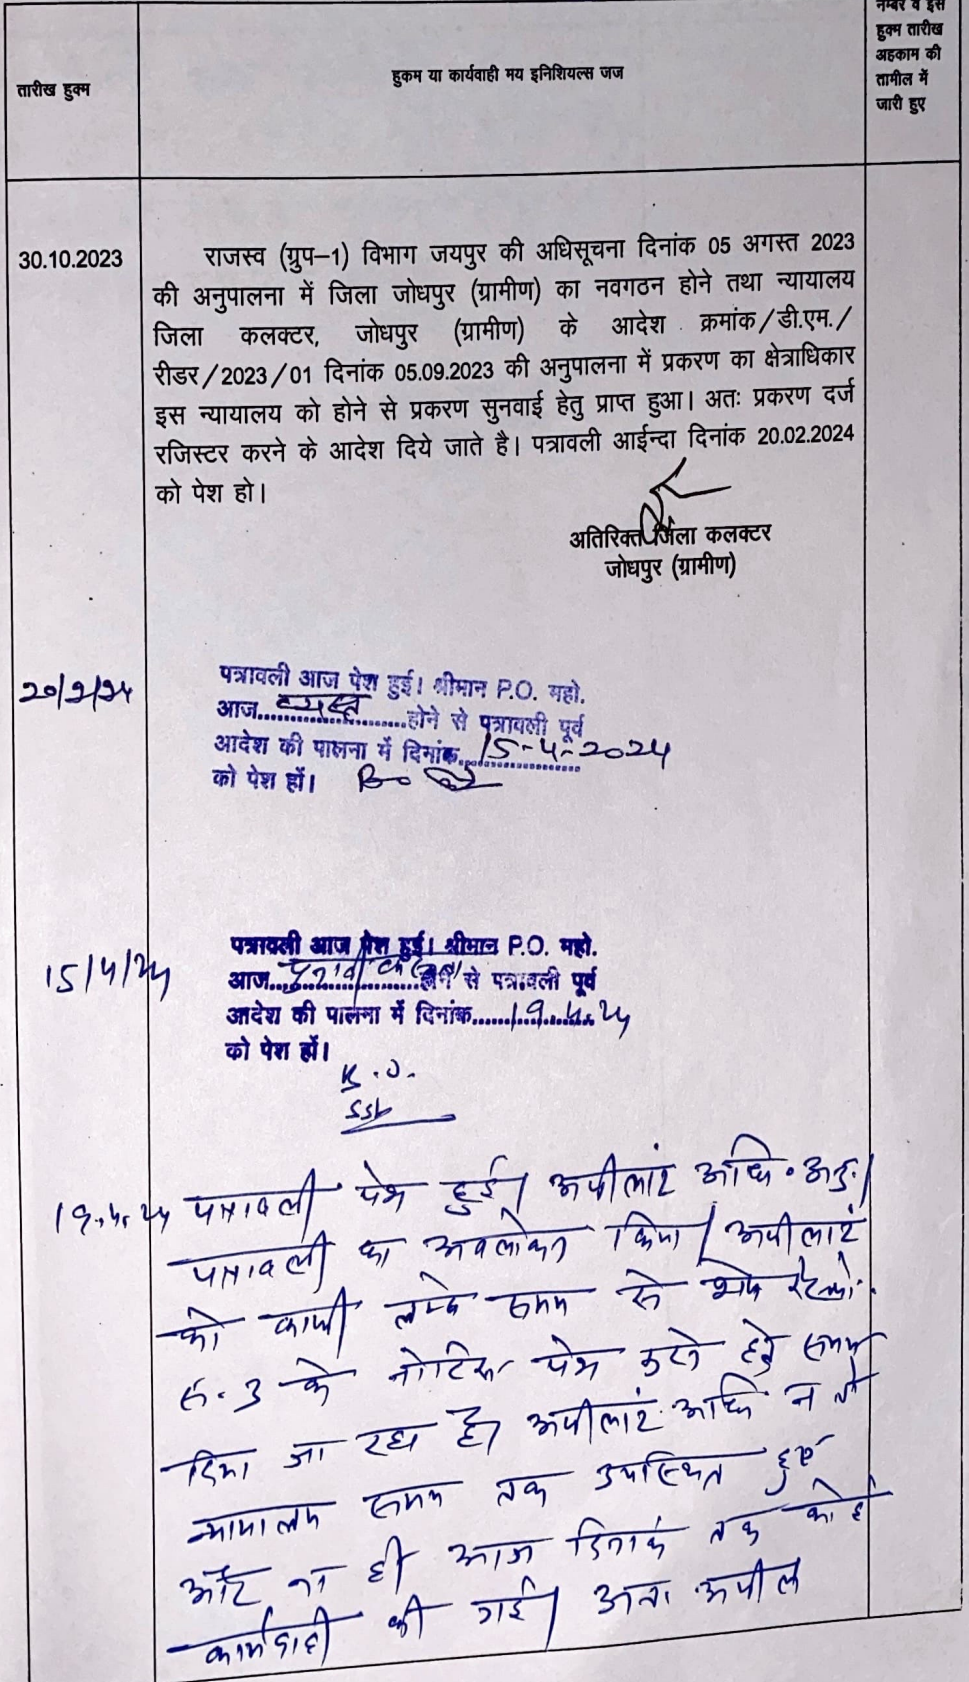 तारीख हुक्म
हुकम या कार्यवाही मय इनिशियल्स जज
नम्बर व इस
हुक्म तारीख
अहकाम की
तामील में
जारी हुए
30.10.2023
राजस्व (ग्रुप–1) विभाग जयपुर की अधिसूचना दिनांक 05 अगस्त 2023
की अनुपालना में जिला जोधपुर (ग्रामीण) का नवगठन होने तथा न्यायालय
जिला कलक्टर, जोधपुर (ग्रामीण) के आदेश क्रमांक/डी.एम./
रीडर/2023/01 दिनांक 05.09.2023 की अनुपालना में प्रकरण का क्षेत्राधिकार
इस न्यायालय को होने से प्रकरण सुनवाई हेतु प्राप्त हुआ। अतः प्रकरण दर्ज
रजिस्टर करने के आदेश दिये जाते है। पत्रावली आईन्दा दिनांक 20.02.2024
को पेश हो।
अतिरिक्त जिला कलक्टर
जोधपुर (ग्रामीण)
20/2/24
पत्रावली आज पेश हुई। श्रीमान P.O. महो.
आज..व्यस्त..होने से पत्रावली पूर्व
आदेश की पालना में दिनांक..15-4-2024
को पेश हों।
15/4/24
पत्रावली आज पेश हुई। श्रीमान P.O. महो.
आज..चुनाव..होने से पत्रावली पूर्व
आदेश की पालना में दिनांक..19.4.24
को पेश हों।
19.4.24 पत्रावली पेश हुई। अपीलांट अधि. अनु.।
पत्रावली का अवलोकन किया। अपीलांट
को काफी लम्बे समय से
के नोटिस पेश करने हेतु समय
दिया जा रहा है। अपीलांट अधि न तो
न्यायालय समय तक उपस्थित हुए
और ना ही आज दिनांक तक कोई
कार्यवाही की गई। अतः अपील